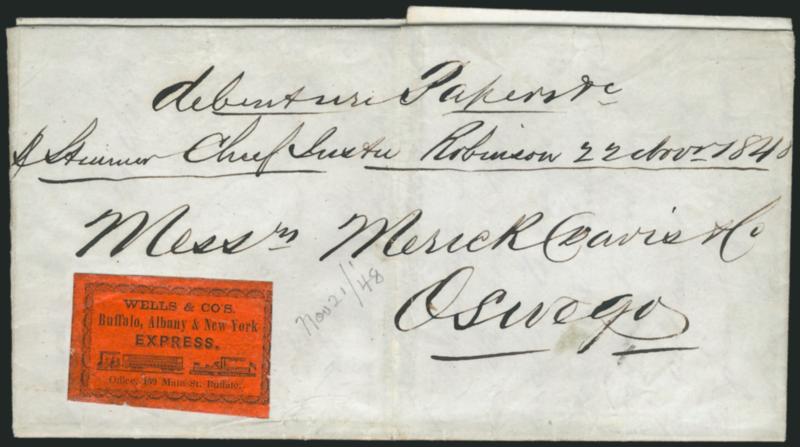 debenture Papers &c
p Steamer Chief Justice Robinson 22 Novr 1848
Messrs Merick Davis & Co
Oswego
Nov 21/48
WELLS & CO'S.
Buffalo, Albany & New York
EXPRESS.
Office, 169 Main St. Buffalo.